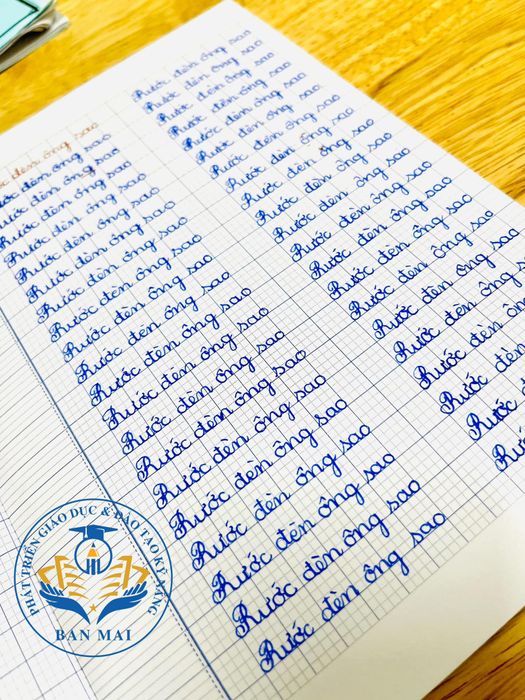 đèn ông sao
đèn ông sao
ước đèn ông sao
Rước đèn ông sao
Rước đèn ông sao
Rước đèn ông sao
Rước đèn ông sao
Rước đèn ông sao
Rước đèn ông sao
Rước đèn ông sao
Rước đèn ông sao
Rước đèn ông sao
Rước đèn ông sao
Rước đèn ông sao
Rước đèn ông sao
Rước đèn ông sao
Rước đèn ông sao
Rước đèn ông sao
Rước đèn ông sao
Rước đèn ông sao
Rước đèn ông sao
Rước đèn ông sao
Rước đèn ông sao
Rước đèn ông sao
Rước đèn ông sao
Rước đèn ông sao
Rước đèn ông sao
Rước đèn ông sao
Rước đèn ông sao
Rước đèn ông sao
Rước đèn ông sao
Rước đèn ông sao
Rước đèn ông sao
Rước đèn ông sao
Rước đèn ông
Rước đèn
Rước
PHÁT TRIỂN GIÁO DỤC & ĐÀO TẠO KỸ NĂNG
BAN MAI